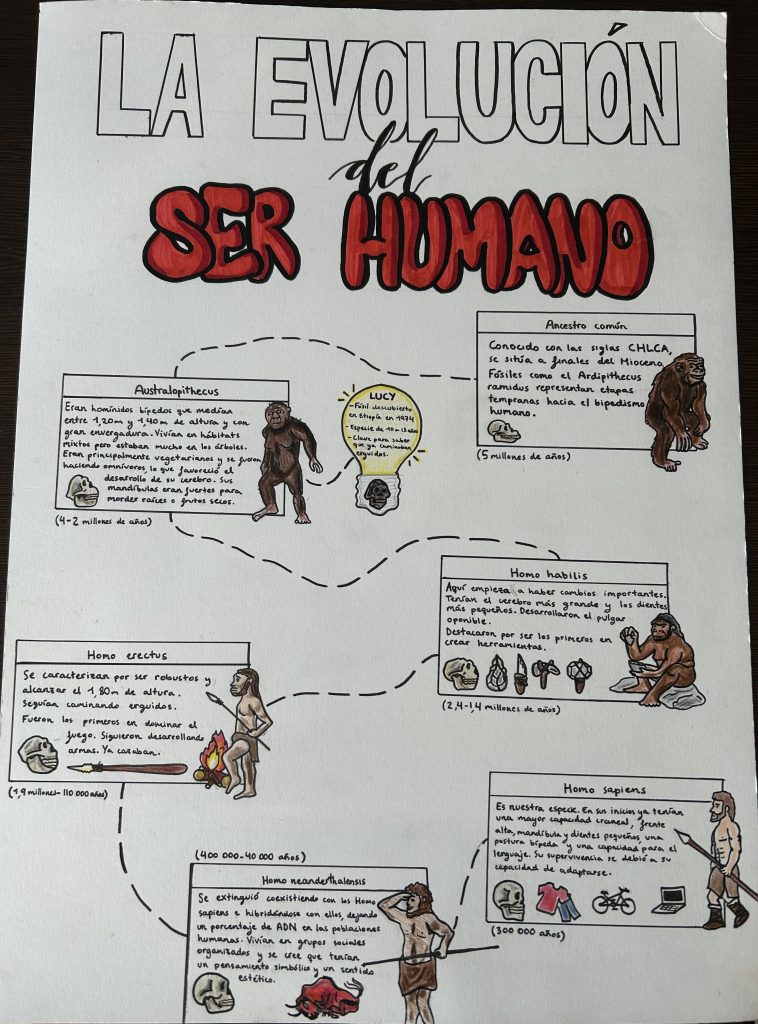 LA EVOLUCIÓN
del
SER HUMANO
Ancestro común
Conocido con las siglas CHLCA,
se sitúa a finales del Mioceno.
Fósiles como el Ardipithecus
ramidus representan etapas
tempranas hacia el bipedismo
humano.
(5 millones de años)
Australopithecus
Eran homínidos bípedos que medían
entre 1,20m y 1,40m de altura y con
gran envergadura. Vivían en hábitats
mixtos pero estaban mucho en los árboles.
Eran principalmente vegetarianos y se fueron
haciendo omnívoros, lo que favoreció el
desarrollo de su cerebro. Sus
mandíbulas eran fuertes para
morder raíces o frutos secos.
(4-2 millones de años)
LUCY
- Fósil descubierto
en Etiopía en 1974
- Especie de 10 a 13 años
- Clave para saber
que ya caminaban
erguidos.
Homo habilis
Aquí empieza a haber cambios importantes.
Tenían el cerebro más grande y los dientes
más pequeños. Desarrollaron el pulgar
oponible.
Destacaron por ser los primeros en
crear herramientas.
(2,4-1,4 millones de años)
Homo erectus
Se caracterizan por ser robustos y
alcanzar el 1,80m de altura.
Seguían caminando erguidos.
Fueron los primeros en dominar el
fuego. Siguieron desarrollando
armas. Ya cazaban.
(1,9 millones-110 000 años)
Homo sapiens
Es nuestra especie. En sus inicios ya tenían
una mayor capacidad craneal, frente
alta, mandíbula y dientes pequeños, una
postura bípeda y una capacidad para el
lenguaje. Su supervivencia se debió a su
capacidad de adaptarse.
(300 000 años)
(400 000-40 000 años)
Homo neanderthalensis
Se extinguió coexistiendo con los Homo
sapiens e hibridándose con ellos, dejando
un porcentaje de ADN en las poblaciones
humanas. Vivían en grupos sociales
organizados y se cree que tenían
un pensamiento simbólico y un sentido
estético.